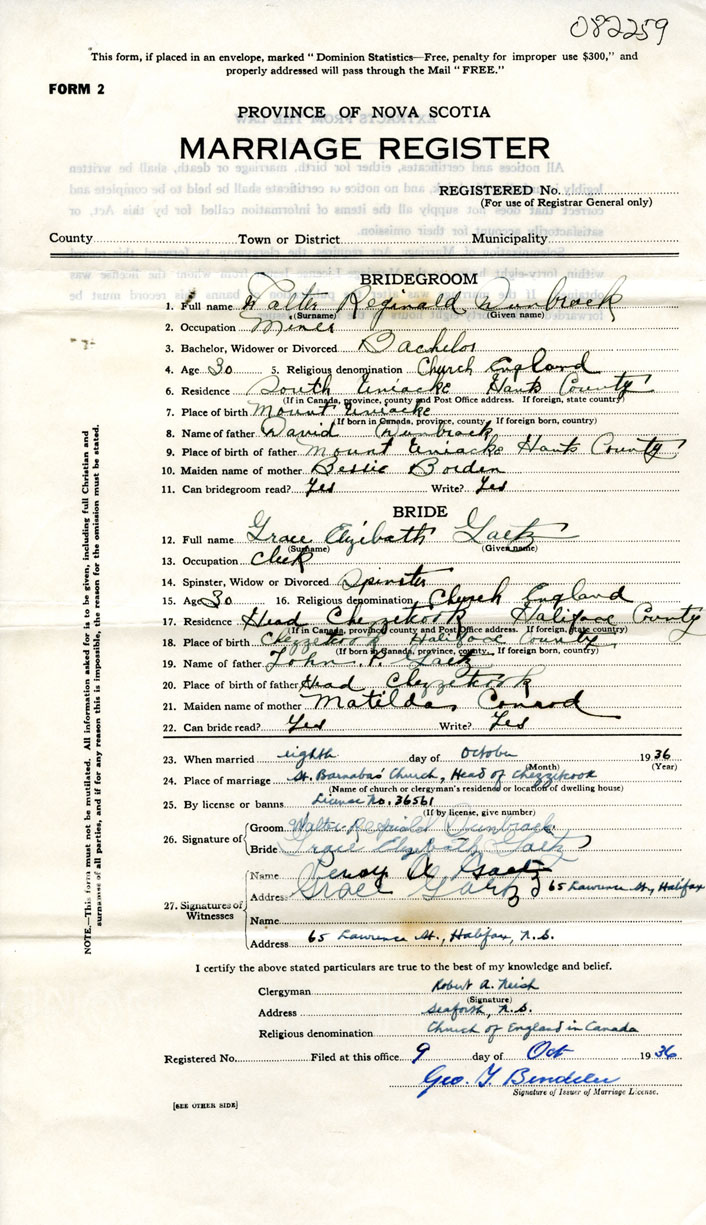 082259
This form, if placed in an envelope, marked "Dominion Statistics—Free, penalty for improper use $300," and
properly addressed will pass through the Mail "FREE."
FORM 2
PROVINCE OF NOVA SCOTIA
MARRIAGE REGISTER
REGISTERED No.
(For use of Registrar General only)
County Town or District Municipality
BRIDEGROOM
1. Full name Walter Reginald Dunbrack
(Surname) (Given name)
2. Occupation Miner
3. Bachelor, Widower or Divorced Bachelor
4. Age 30 5. Religious denomination Church England
6. Residence South Uniacke Hants County
(If in Canada, province, county and Post Office address. If foreign, state country)
7. Place of birth Mount Uniacke
(If born in Canada, province, county. If foreign born, country)
8. Name of father David Dunbrack
9. Place of birth of father Mount Uniacke Hants County
10. Maiden name of mother Bessie Borden
11. Can bridegroom read? Yes Write? Yes
BRIDE
12. Full name Grace Elizibath Gaetz
(Surname) (Given name)
13. Occupation Clerk
14. Spinster, Widow or Divorced Spinster
15. Age 30 16. Religious denomination Church England
17. Residence Head Chezzetcook Halifax County
(If in Canada, province, county and Post Office address. If foreign, state country)
18. Place of birth Chezzetcook Halifax County
(If born in Canada, province, county. If foreign born, country)
19. Name of father John P. Gaetz
20. Place of birth of father Head Chezzetcook
21. Maiden name of mother Matilda Conrod
22. Can bride read? Yes Write? Yes
23. When married eighth day of October 1936
(Month) (Year)
24. Place of marriage St. Barnabas' Church, Head of Chezzetcook
(Name of church or clergyman's residence or location of dwelling house)
25. By license or banns License No. 36561
(If by license, give number)
26. Signature of Groom Walter Reginald Dunbrack
Bride Grace Elizibath Gaetz
27. Signatures of Witnesses
Name Leroy A Gaetz
Address Grace Gaetz 65 Lawrence St., Halifax
Name
Address 65 Lawrence St., Halifax, N.S.
I certify the above stated particulars are true to the best of my knowledge and belief.
Clergyman Robert A. Neish
(Signature)
Address Seaforth, N.S.
Religious denomination Church of England in Canada
Registered No. Filed at this office 9 day of Oct 1936
Geo. Y.
Signature of Issuer of Marriage License.
[SEE OTHER SIDE]
NOTE.—This form must not be mutilated. All information asked for is to be given, including full Christian and
surnames of all parties, and if for any reason this is impossible, the reason for the omission must be stated.